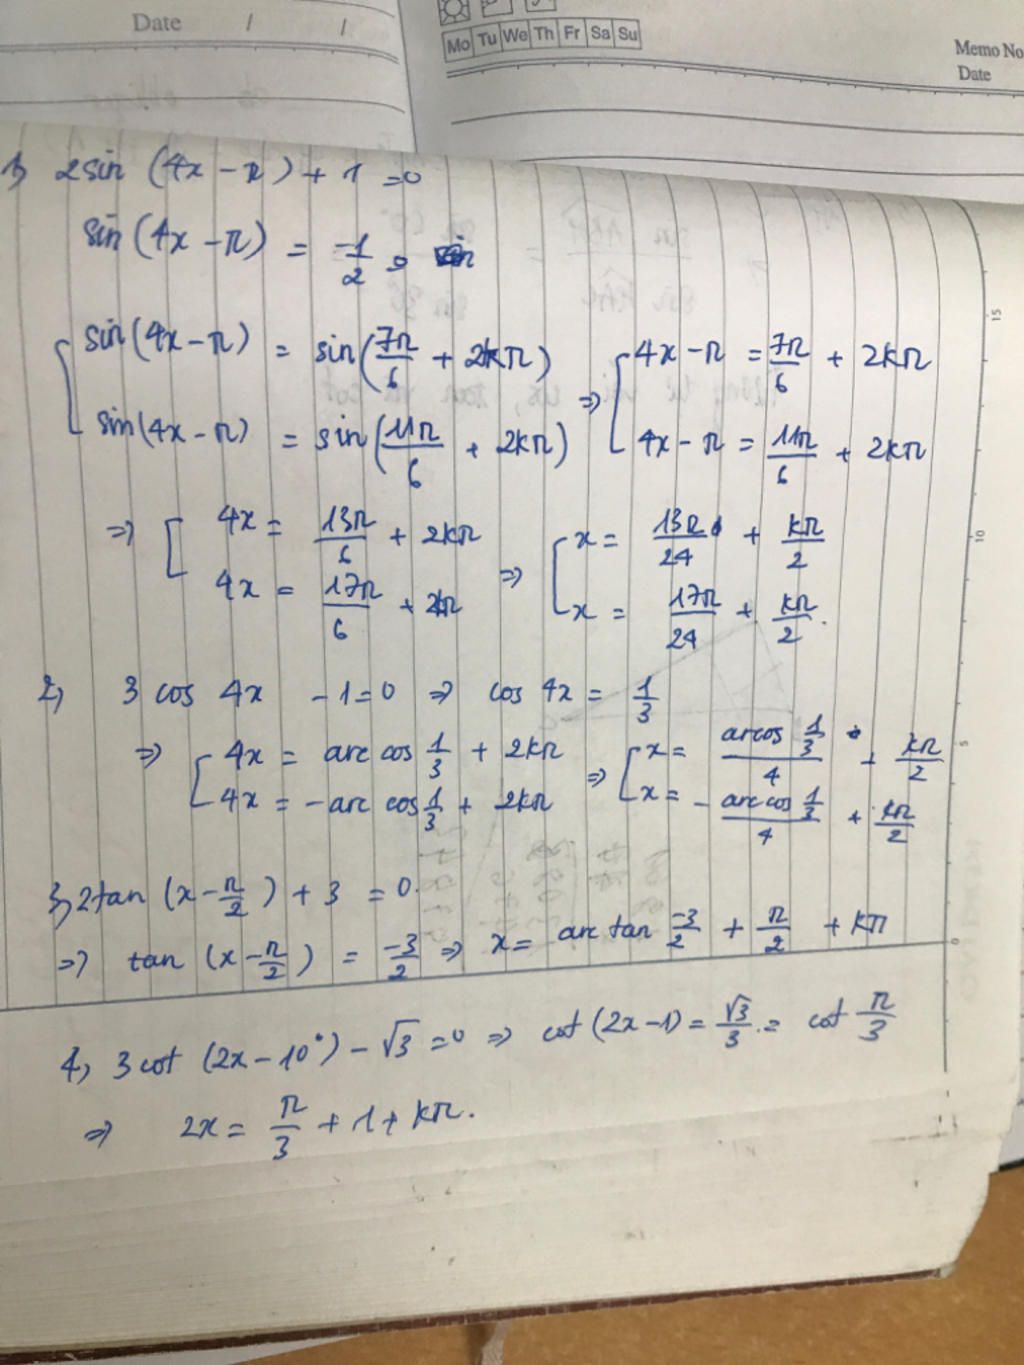 Date / /
Mo Tu We Th Fr Sa Su
Memo No
Date
1) 2sin (4x - π) + 1 = 0
sin (4x - π) = -1/2
[ sin(4x - π) = sin(7π/6 + 2kπ) ⇒ [ 4x - π = 7π/6 + 2kπ
sin(4x - π) = sin(11π/6 + 2kπ) 4x - π = 11π/6 + 2kπ
⇒ [ 4x = 13π/6 + 2kπ ⇒ [ x = 13π/24 + kπ/2
4x = 17π/6 + 2kπ x = 17π/24 + kπ/2.
2, 3 cos 4x - 1 = 0 ⇒ cos 4x = 1/3
⇒ [ 4x = arc cos 1/3 + 2kπ ⇒ [ x = arcos 1/3 / 4 + kπ/2
4x = - arc cos 1/3 + 2kπ x = - arc cos 1/3 / 4 + kπ/2
3, 2tan (x - π/2) + 3 = 0.
⇒ tan (x - π/2) = -3/2 ⇒ x = arc tan -3/2 + π/2 + kπ
4, 3 cot (2x - 10°) - √3 = 0 ⇒ cot (2x - 1) = √3/3 = cot π/3
⇒ 2x = π/3 + 1 + kπ.
15
10
5
0